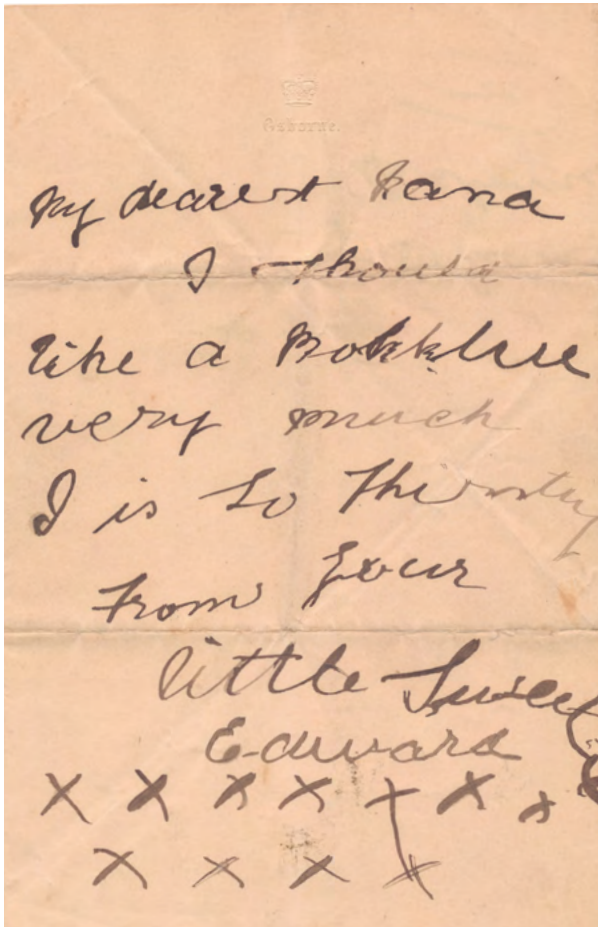 Osborne.
My dearest Nana
I should
like a Bokkle
very much
I is so thirsty
From your
little Sweet
Edward
x x x x x x x
x x x x